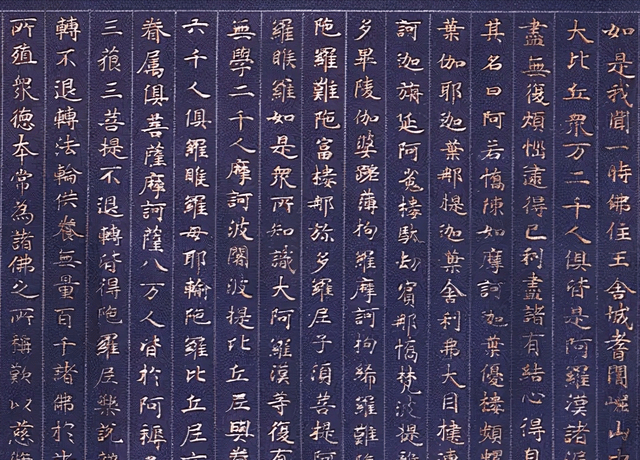 如是我聞一時佛住王舍城耆闍崛山中
大比丘衆万二千人俱皆是阿羅漢諸漏
盡無復煩惱逮得己利盡諸有結心得自
其名曰阿若憍陳如摩訶迦葉優樓頻螺
葉伽耶迦葉那提迦葉舍利弗大目揵連
訶迦旃延阿㝹樓馱劫賓那憍梵波提離
多畢陵伽婆蹉薄拘羅摩訶拘絺羅難陁
陁羅難陁富樓那弥多羅尼子須菩提阿
羅睺羅如是衆所知識大阿羅漢等復有
無學二千人摩訶波闍波提比丘尼與眷
六千人俱羅睺羅母耶輸陁羅比丘尼亦
眷属俱菩薩摩訶薩八万人皆於阿耨多
三藐三菩提不退轉皆得陁羅尼樂說辯
轉不退轉法輪供養無量百千諸佛於諸
所殖衆徳本常為諸佛之所稱歎以慈修